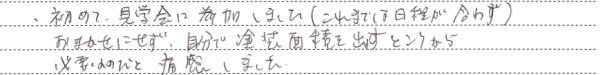 、初めて、見学会に参加しました(これまでは日程が合わず)
おまかせにせず、自分で塗装面積を出すところから
必要なのだと痛感しました